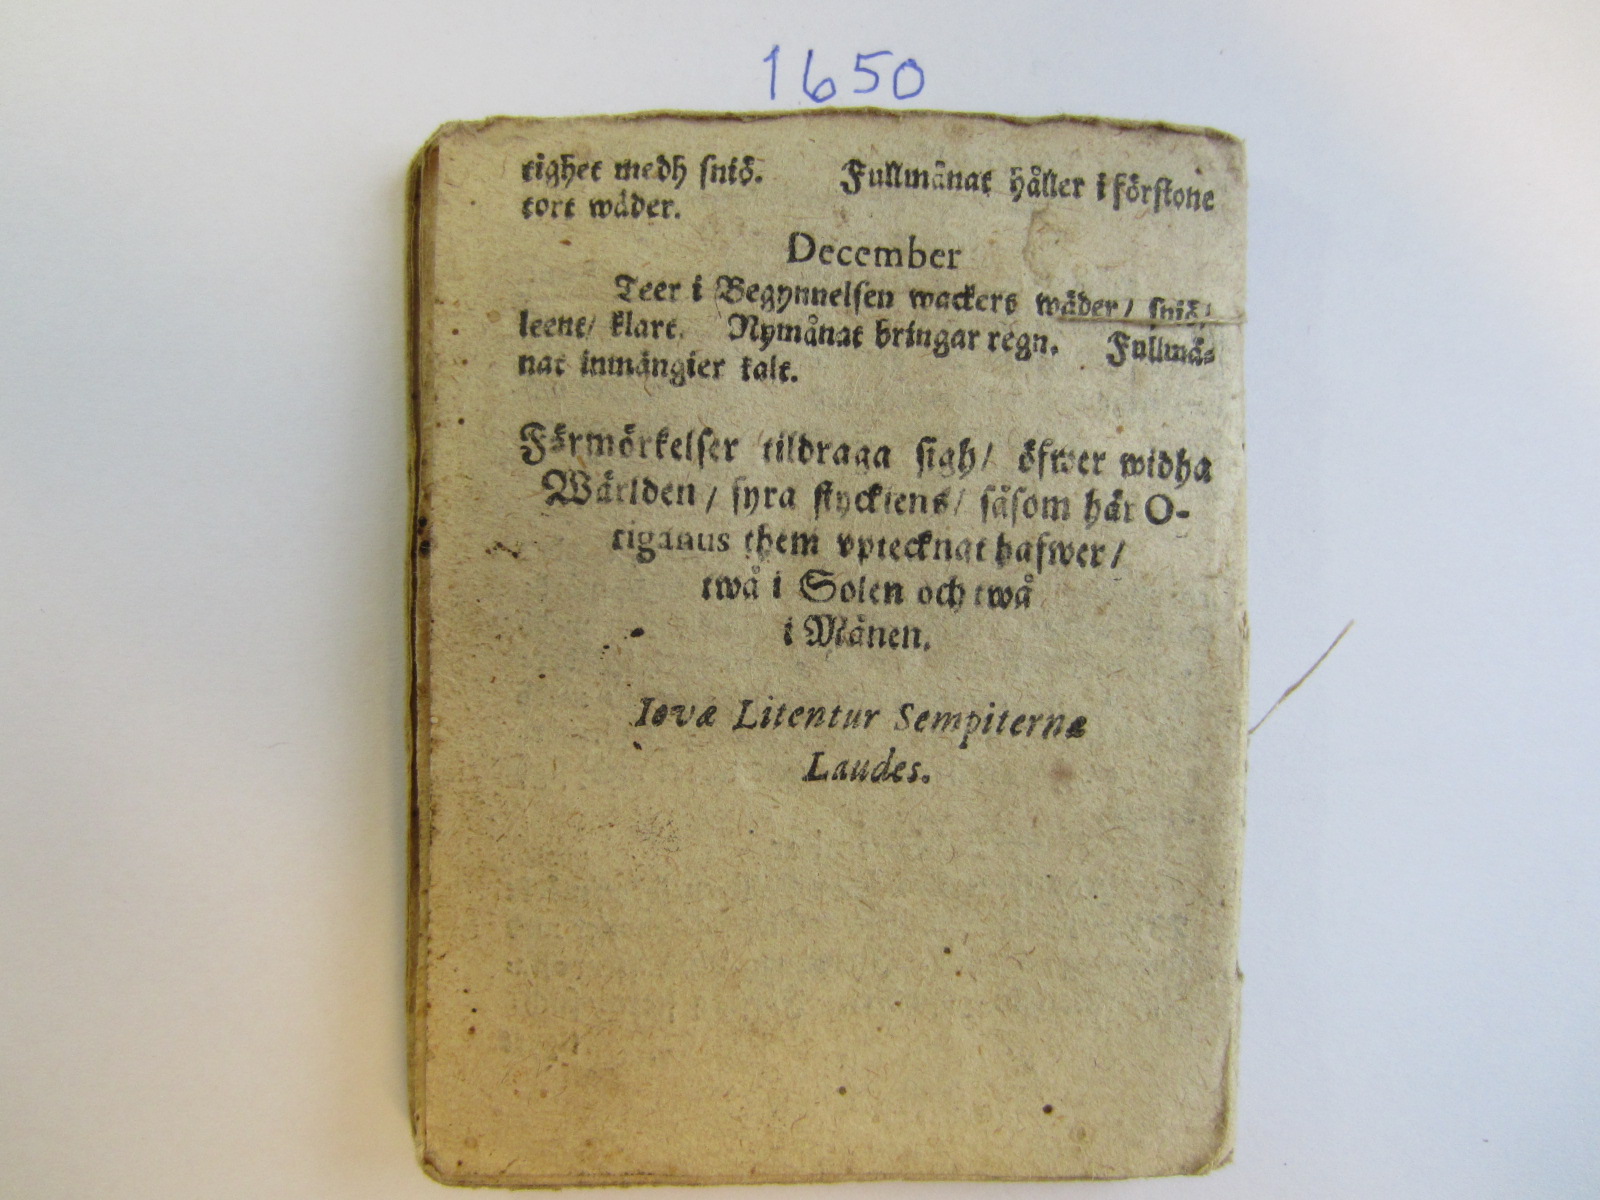 1650
tighet medh sniö. Fullmånat håller i förstone
tort wäder.
December
Teer i Begynnelsen wackert wäder / sniö /
leent / klart. Nymånat bringar regn. Fullmå-
nat inmängier kalt.
Förmörkelser tildraga sigh / öfwer widha
Wärlden / fyra styckiens / såsom här O-
riganus them vptecknat hafwer /
twå i Solen och twå
i Månen.
Iovæ Litentur Sempiternæ
Laudes.